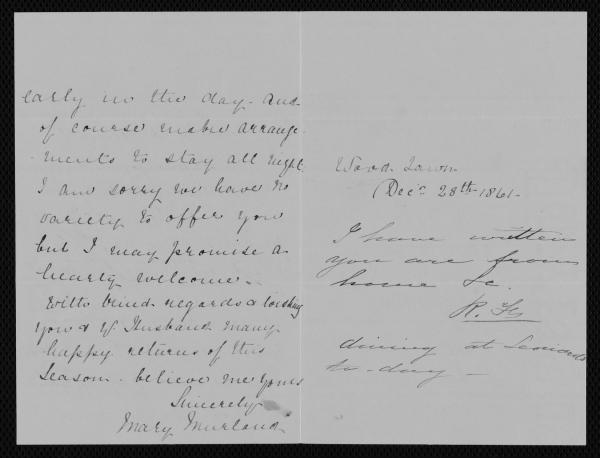 early in the day. And
of course make arrange
-ments to stay all night.
I am sorry we have no
variety to offer you
but I may promise a
hearty welcome.
With kind regards & wishing
you & yr Husband many
happy returns of this
Season. believe me yours
Sincerely
Mary Murland
Wood Lawn
Decr 28th 1861
I have written
you are from
home &c.
dining at
to-day –